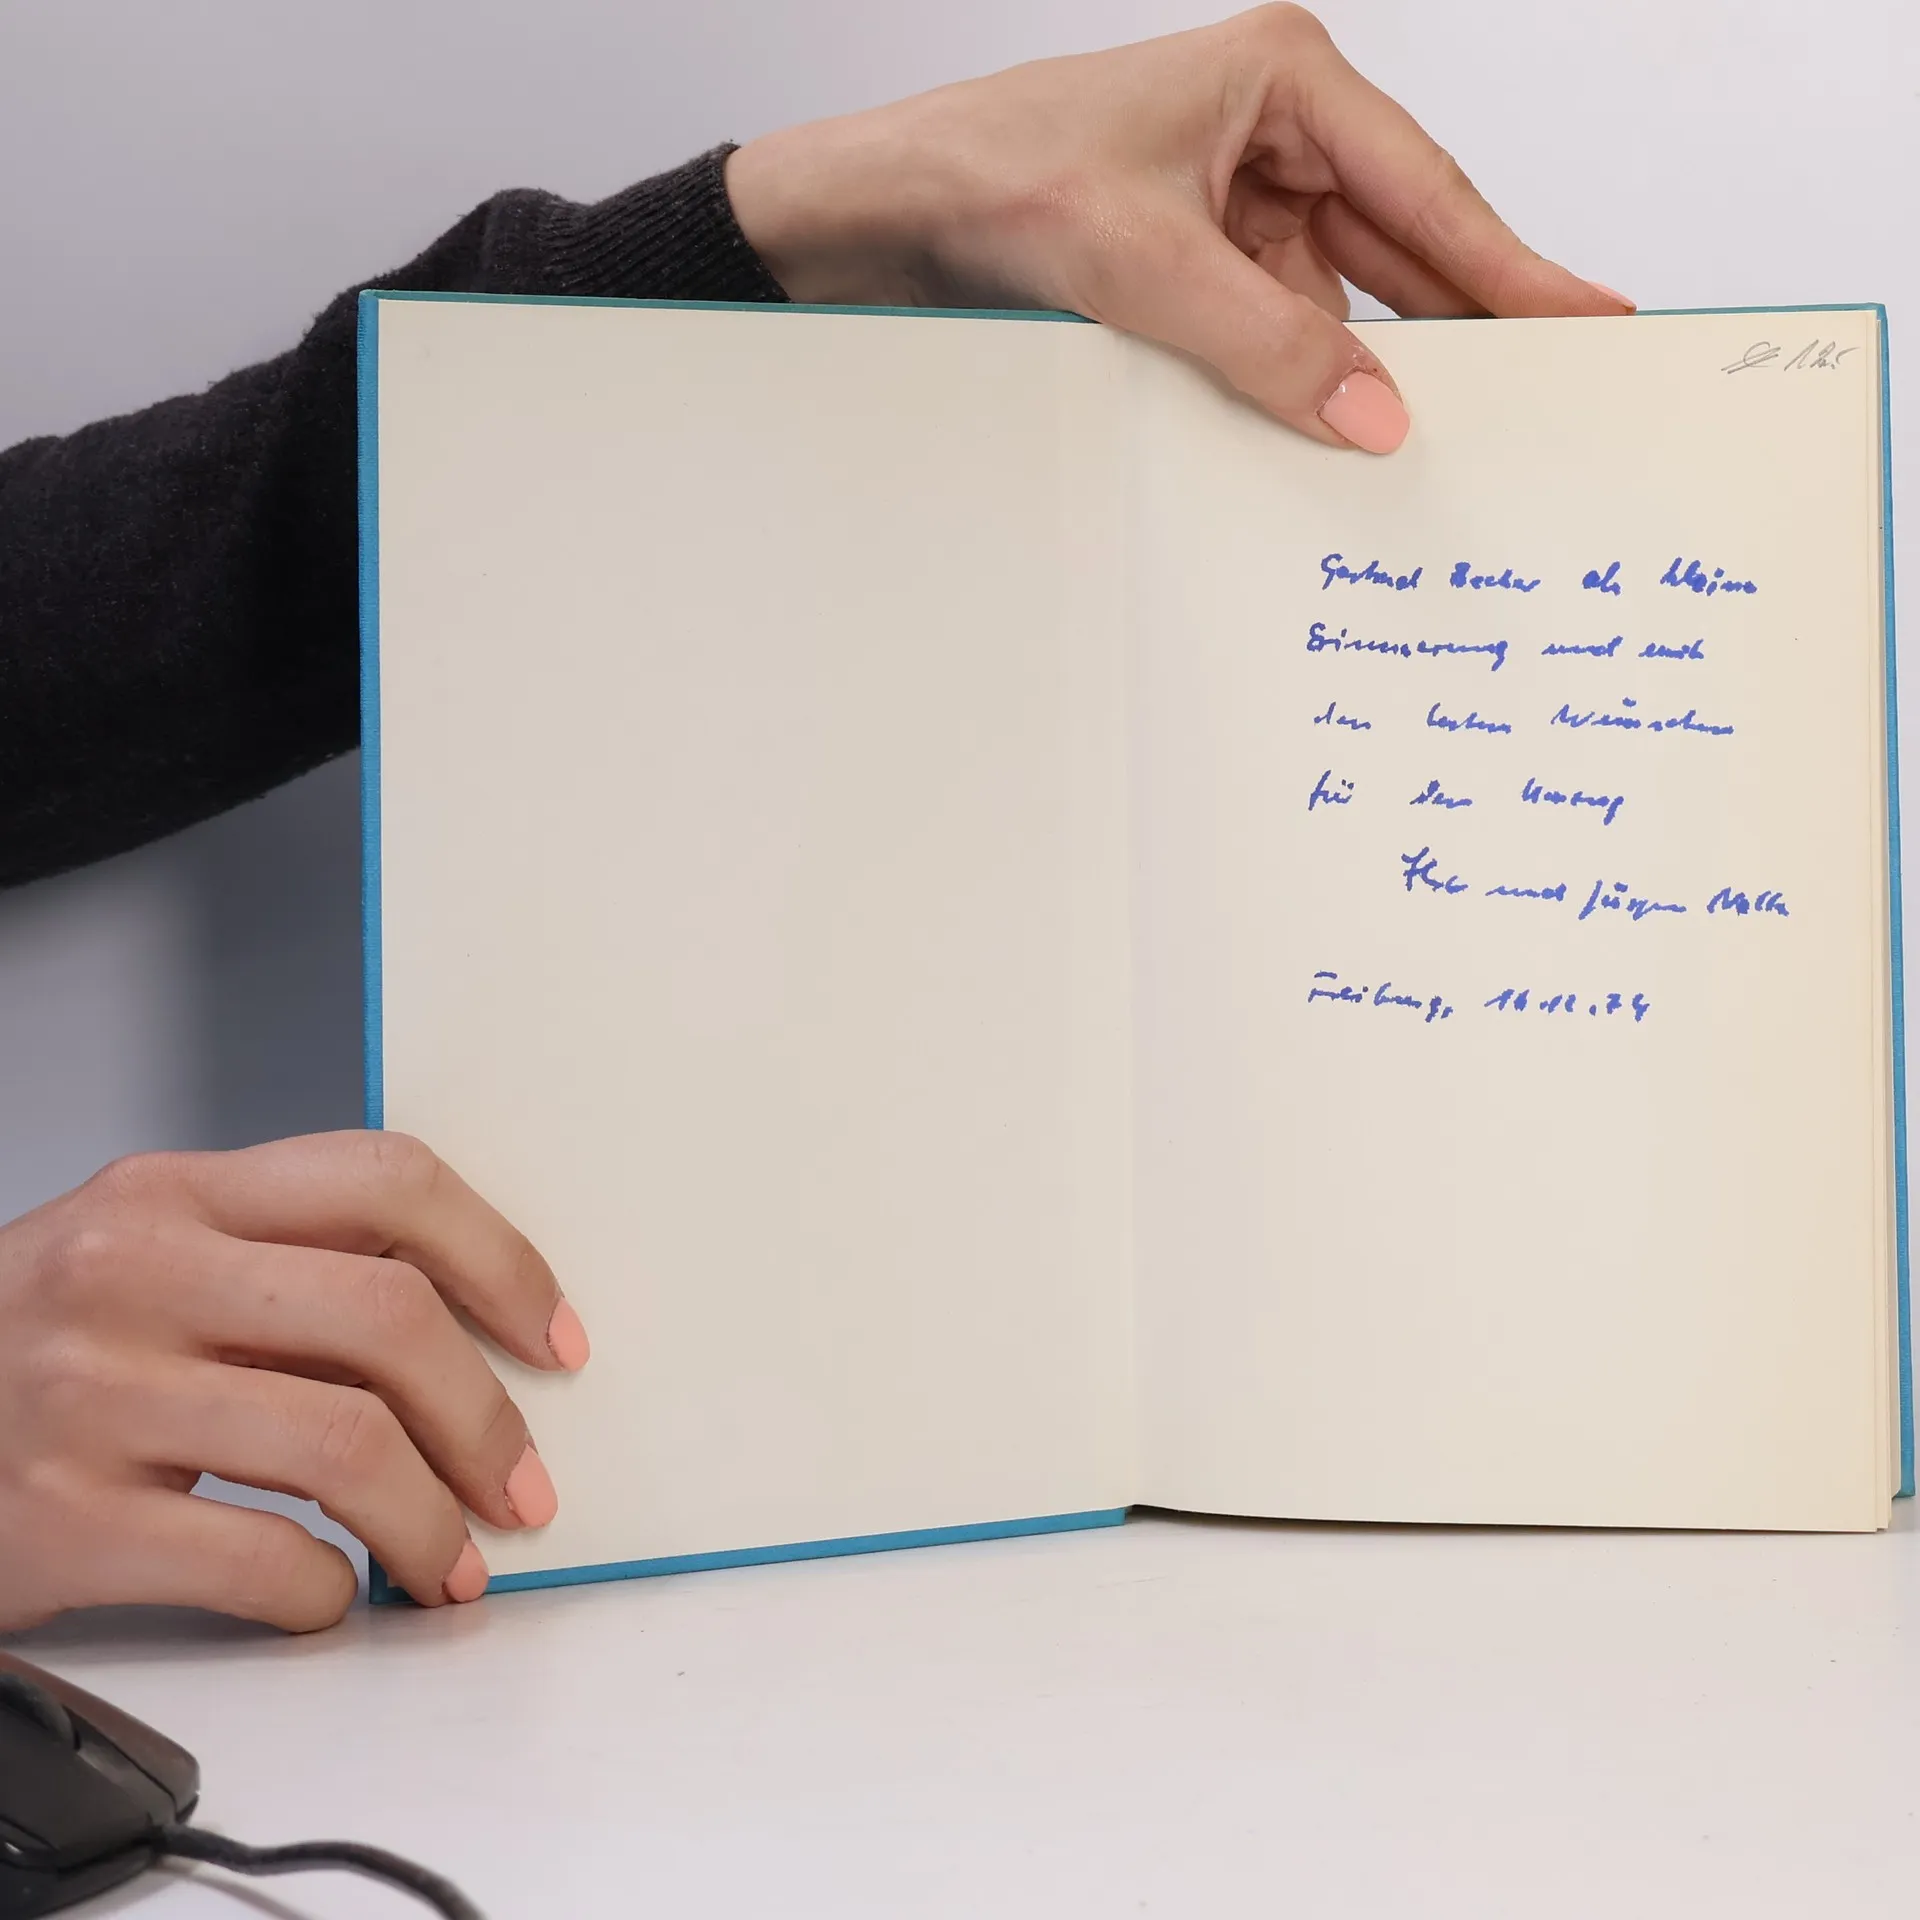 Gerhard Becker als kleine
Erinnerung und mit
den besten Wünschen
für den Umzug
und Jürgen
Freiburg, 12.74